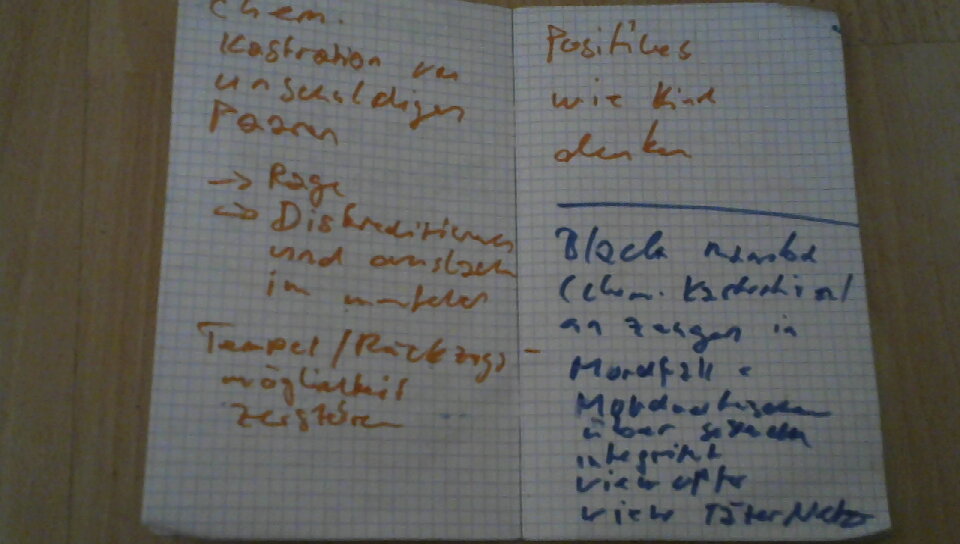 chem.
Kastration von
unschuldigen
Paaren
→ Rage
→ Diskreditieren
und auslachen
im
Tempel / Rückzugs-
möglichkeit
zerstören
Positives
wie Kind
denken
Black
(chem. Kastration)
an Zeugen in
Mordfall
über
integrität
viele Opfer
viele Täter Netz